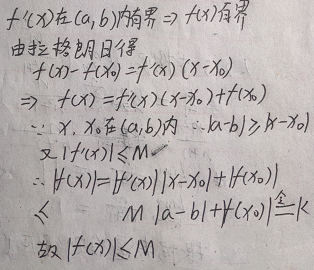 f'(x)在(a,b)内有界 ⇒ f(x)有界
由拉格朗日得
f(x)-f(x₀)=f'(x)(x-x₀)
⇒ f(x)=f'(x)(x-x₀)+f(x₀)
∵ x, x₀在(a,b)内 ∴|a-b|≥|x-x₀|
又|f'(x)|≤M
∴|f(x)|=|f'(x)||x-x₀|+|f(x₀)|
≤ M|a-b|+|f(x₀)|≙K
故|f(x)|≤M